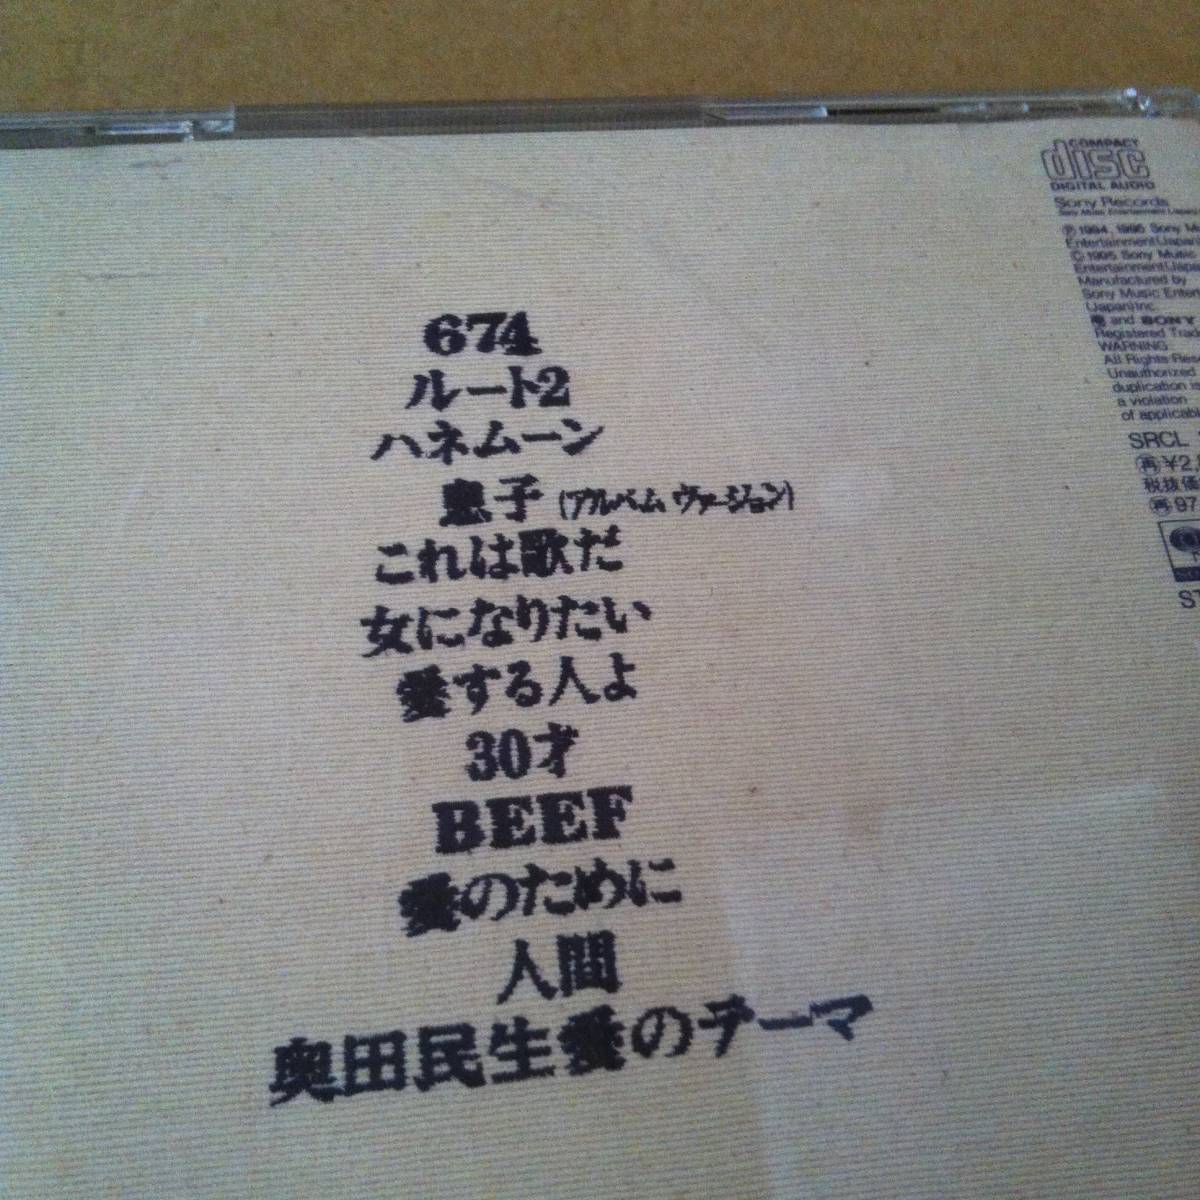 674
ルート2
ハネムーン
息子 (アルバム ヴァージョン)
これは歌だ
女になりたい
愛する人よ
30才
BEEF
愛のために
人間
奥田民生愛のテーマ
COMPACT
disc
DIGITAL AUDIO
Sony Records
Sony Music Entertainment (Japan)
Ⓟ1994, 1995 Sony M
Entertainment(Japan
Ⓒ1995 Sony Music
Entertainment(Japa
Manufactured by
Sony Music Enter
(Japan)Inc.
and SONY
Registered Trad
WARNING
All Rights Res
Unauthorized
duplication is
a violation
of applicab
SRCL
再 ¥2,
税抜価
再 97
ST